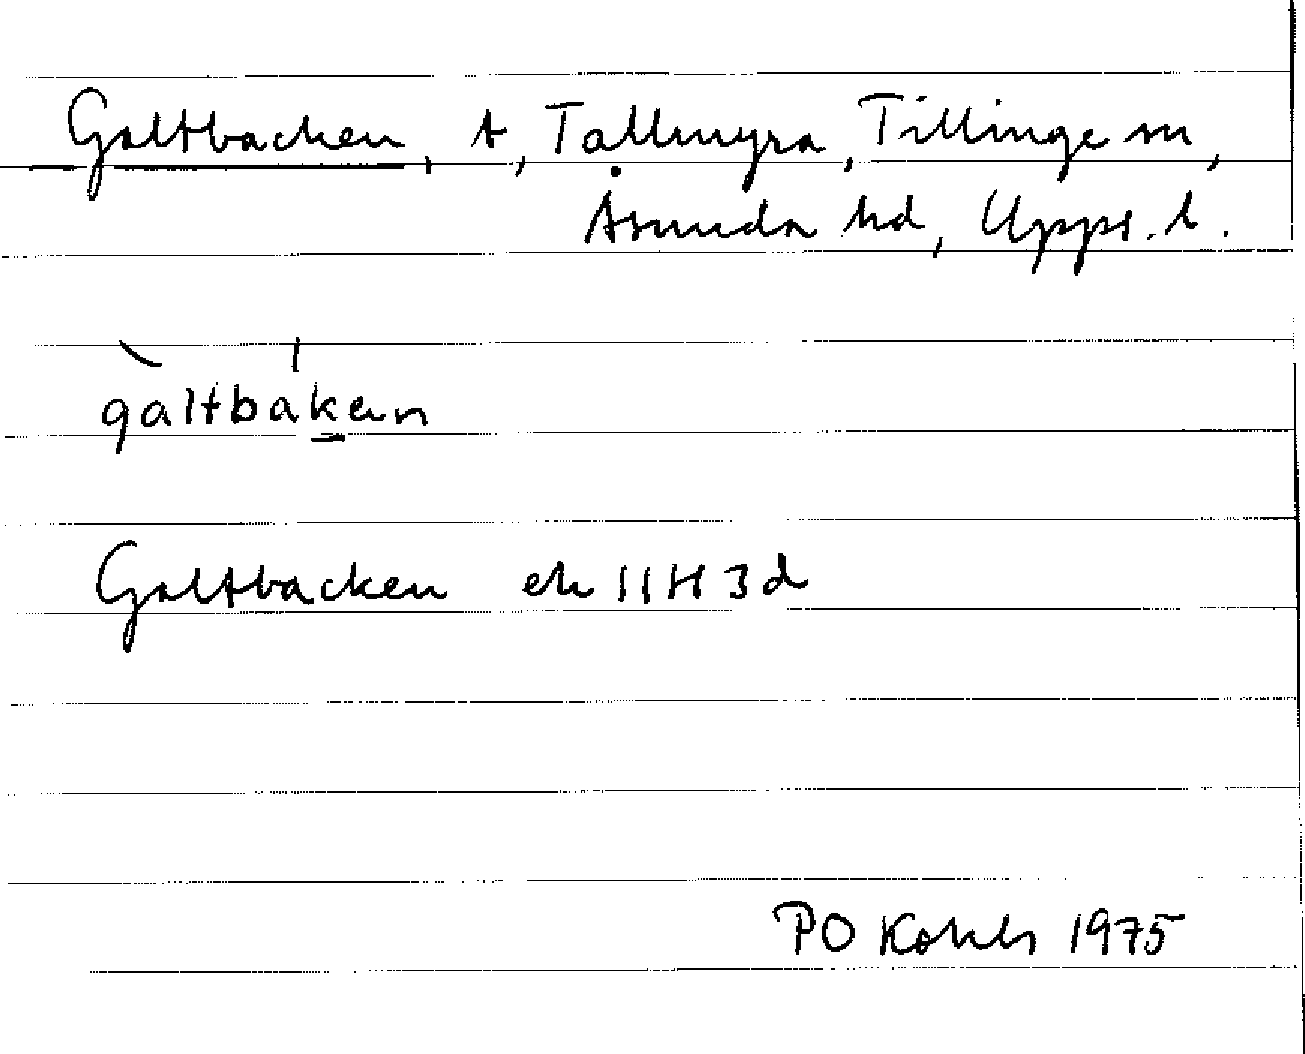 Galtbacken, t, Tallmyra, Tillinge sn,
Åsunda hd, Upps. l.
galtbaken
Galtbacken ek 11H 3d
PO 1975